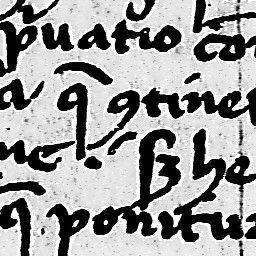 puatio co
a q̄ ꝯtine
ue. sꝫ he
q̄. ponitur